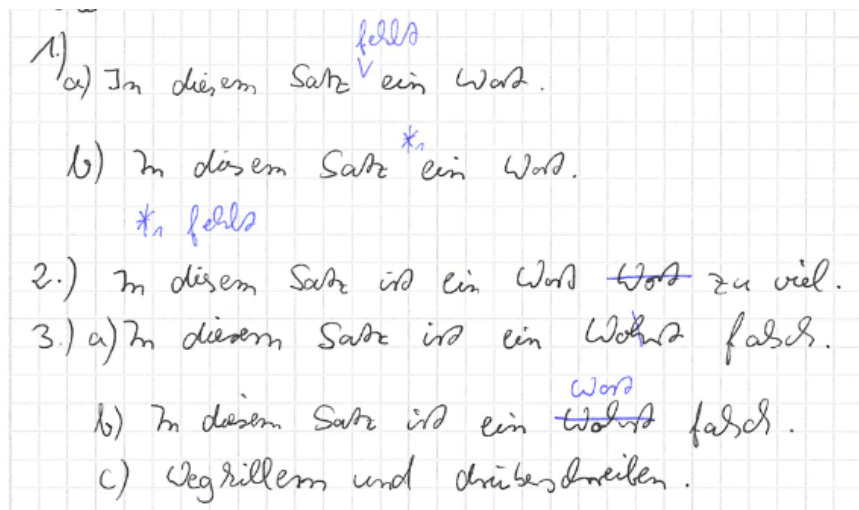 fehlt
1.) a) In diesem Satz ein Wort.
b) In diesem Satz *1 ein Wort.
*1 fehlt
2.) In diesem Satz ist ein Wort Wort zu viel.
3.) a) In diesem Satz ist ein Wohrt falsch.
Wort
b) In diesem Satz ist ein Wohrt falsch.
c) Wegkillern und drüberschreiben.